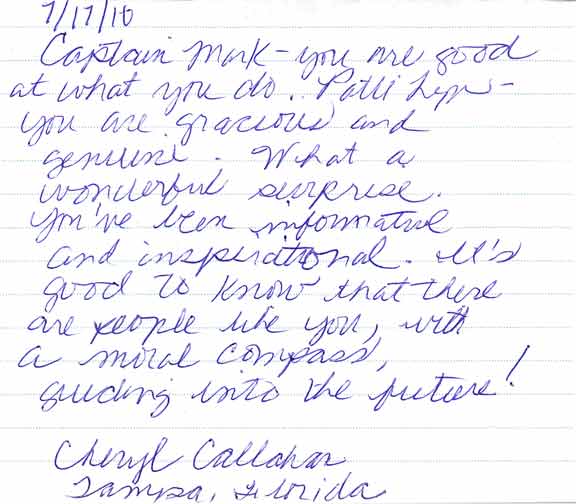 7/17/10
Captain Mark - you are good
at what you do. Patti Lyn -
you are gracious and
genuine. What a
wonderful surprise.
You've been informative
and inspirational. It's
good to know that there
are people like you, with
a moral compass,
guiding into the future!
Cheryl Callahan
Tampa, Florida